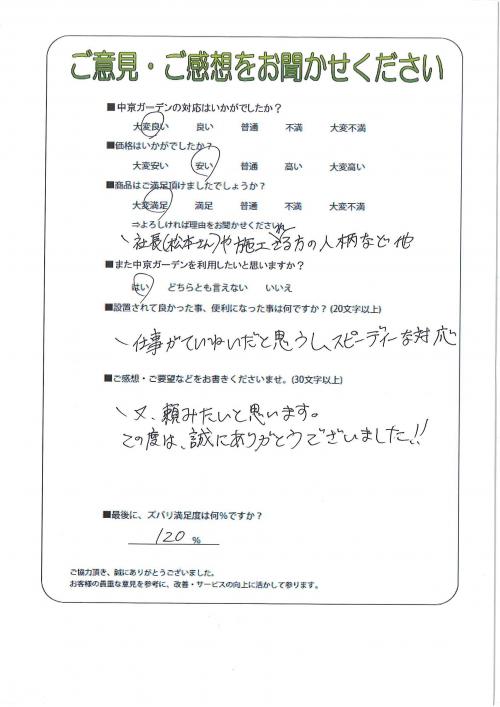 ご意見・ご感想をお聞かせください
■中京ガーデンの対応はいかがでしたか？
大変良い 良い 普通 不満 大変不満
■価格はいかがでしたか？
大変安い 安い 普通 高い 大変高い
■商品はご満足頂けましたでしょうか？
大変満足 満足 普通 不満 大変不満
⇒よろしければ理由をお聞かせください。
社長(松本さん)や施工される方の人柄など他
■また中京ガーデンを利用したいと思いますか？
はい どちらとも言えない いいえ
■設置されて良かった事、便利になった事は何ですか？(20文字以上)
仕事がていねいだと思うし、スピーディーな対応
■ご感想・ご要望などをお書きくださいませ。(30文字以上)
又、頼みたいと思います。
この度は、誠にありがとうございました!!
■最後に、ズバリ満足度は何％ですか？
120 %
ご協力頂き、誠にありがとうございました。
お客様の貴重な意見を参考に、改善・サービスの向上に活かして参ります。